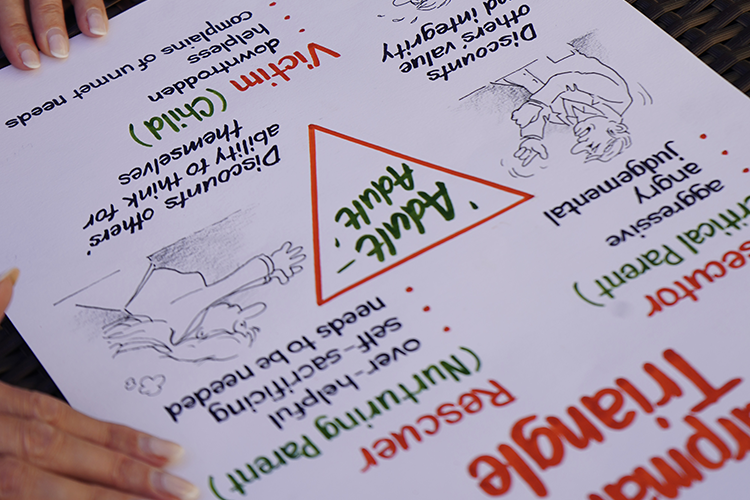 arpman
Triangle
secutor
ritical Parent)
aggressive
angry
judgemental
Rescuer
(Nurturing Parent)
over-helpful
self-sacrificing
needs to be needed
'Adult –
Adult'
Discounts
others' value
nd integrity
Discounts others'
ability to think for
themselves
Victim (Child)
downtrodden
helpless
complains of unmet needs